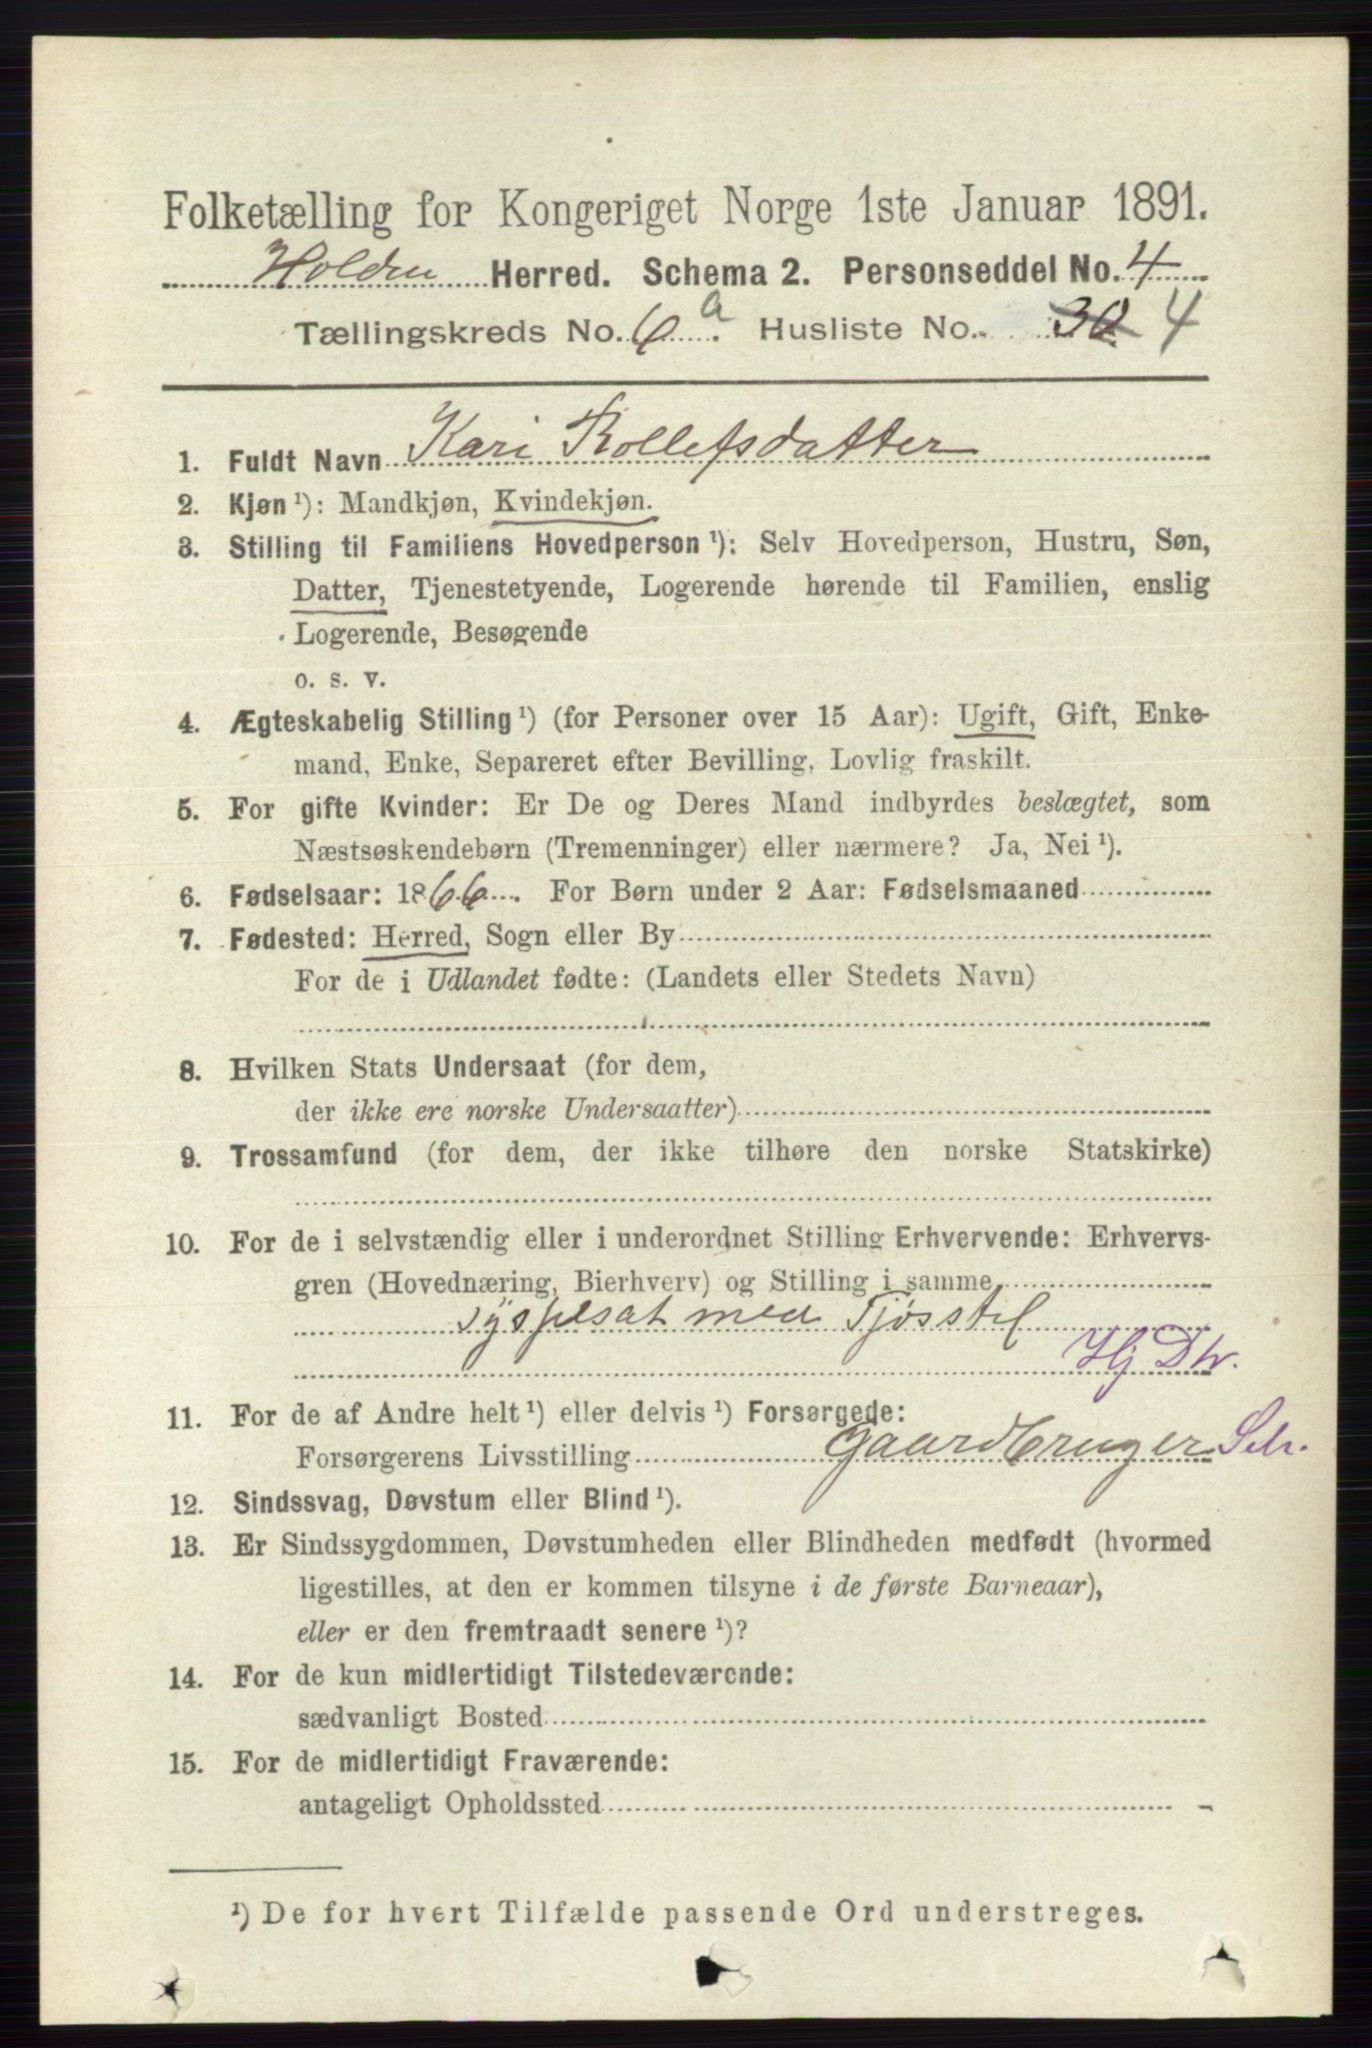 Folketælling for Kongeriget Norge 1ste Januar 1891.
Holden Herred. Schema 2. Personseddel No. 4
Tællingskreds No. 6 a. Husliste No. 30 4
1. Fuldt Navn Kari Rollefsdatter
2. Kjøn ¹): Mandkjøn, Kvindekjøn.
3. Stilling til Familiens Hovedperson ¹): Selv Hovedperson, Hustru, Søn,
Datter, Tjenestetyende, Logerende hørende til Familien, enslig
Logerende, Besøgende
o. s. v.
4. Ægteskabelig Stilling ¹) (for Personer over 15 Aar): Ugift, Gift, Enke-
mand, Enke, Separeret efter Bevilling, Lovlig fraskilt.
5. For gifte Kvinder: Er De og Deres Mand indbyrdes beslægtet, som
Næstsøskendebørn (Tremenninger) eller nærmere? Ja, Nei ¹).
6. Fødselsaar: 1866. For Børn under 2 Aar: Fødselsmaaned
7. Fødested: Herred, Sogn eller By
For de i Udlandet fødte: (Landets eller Stedets Navn)
8. Hvilken Stats Undersaat (for dem,
der ikke ere norske Undersaatter)
9. Trossamfund (for dem, der ikke tilhøre den norske Statskirke)
10. For de i selvstændig eller i underordnet Stilling Erhvervende: Erhvervs-
gren (Hovednæring, Bierhverv) og Stilling i samme
sysselsat med Fjøsstel
Hj Dtr.
11. For de af Andre helt ¹) eller delvis ¹) Forsørgede:
Forsørgerens Livsstilling Gaardbruger Selv.
12. Sindssvag, Døvstum eller Blind ¹).
13. Er Sindssygdommen, Døvstumheden eller Blindheden medfødt (hvormed
ligestilles, at den er kommen tilsyne i de første Barneaar),
eller er den fremtraadt senere ¹)?
14. For de kun midlertidigt Tilstedeværende:
sædvanligt Bosted
15. For de midlertidigt Fraværende:
antageligt Opholdssted
¹) De for hvert Tilfælde passende Ord understreges.